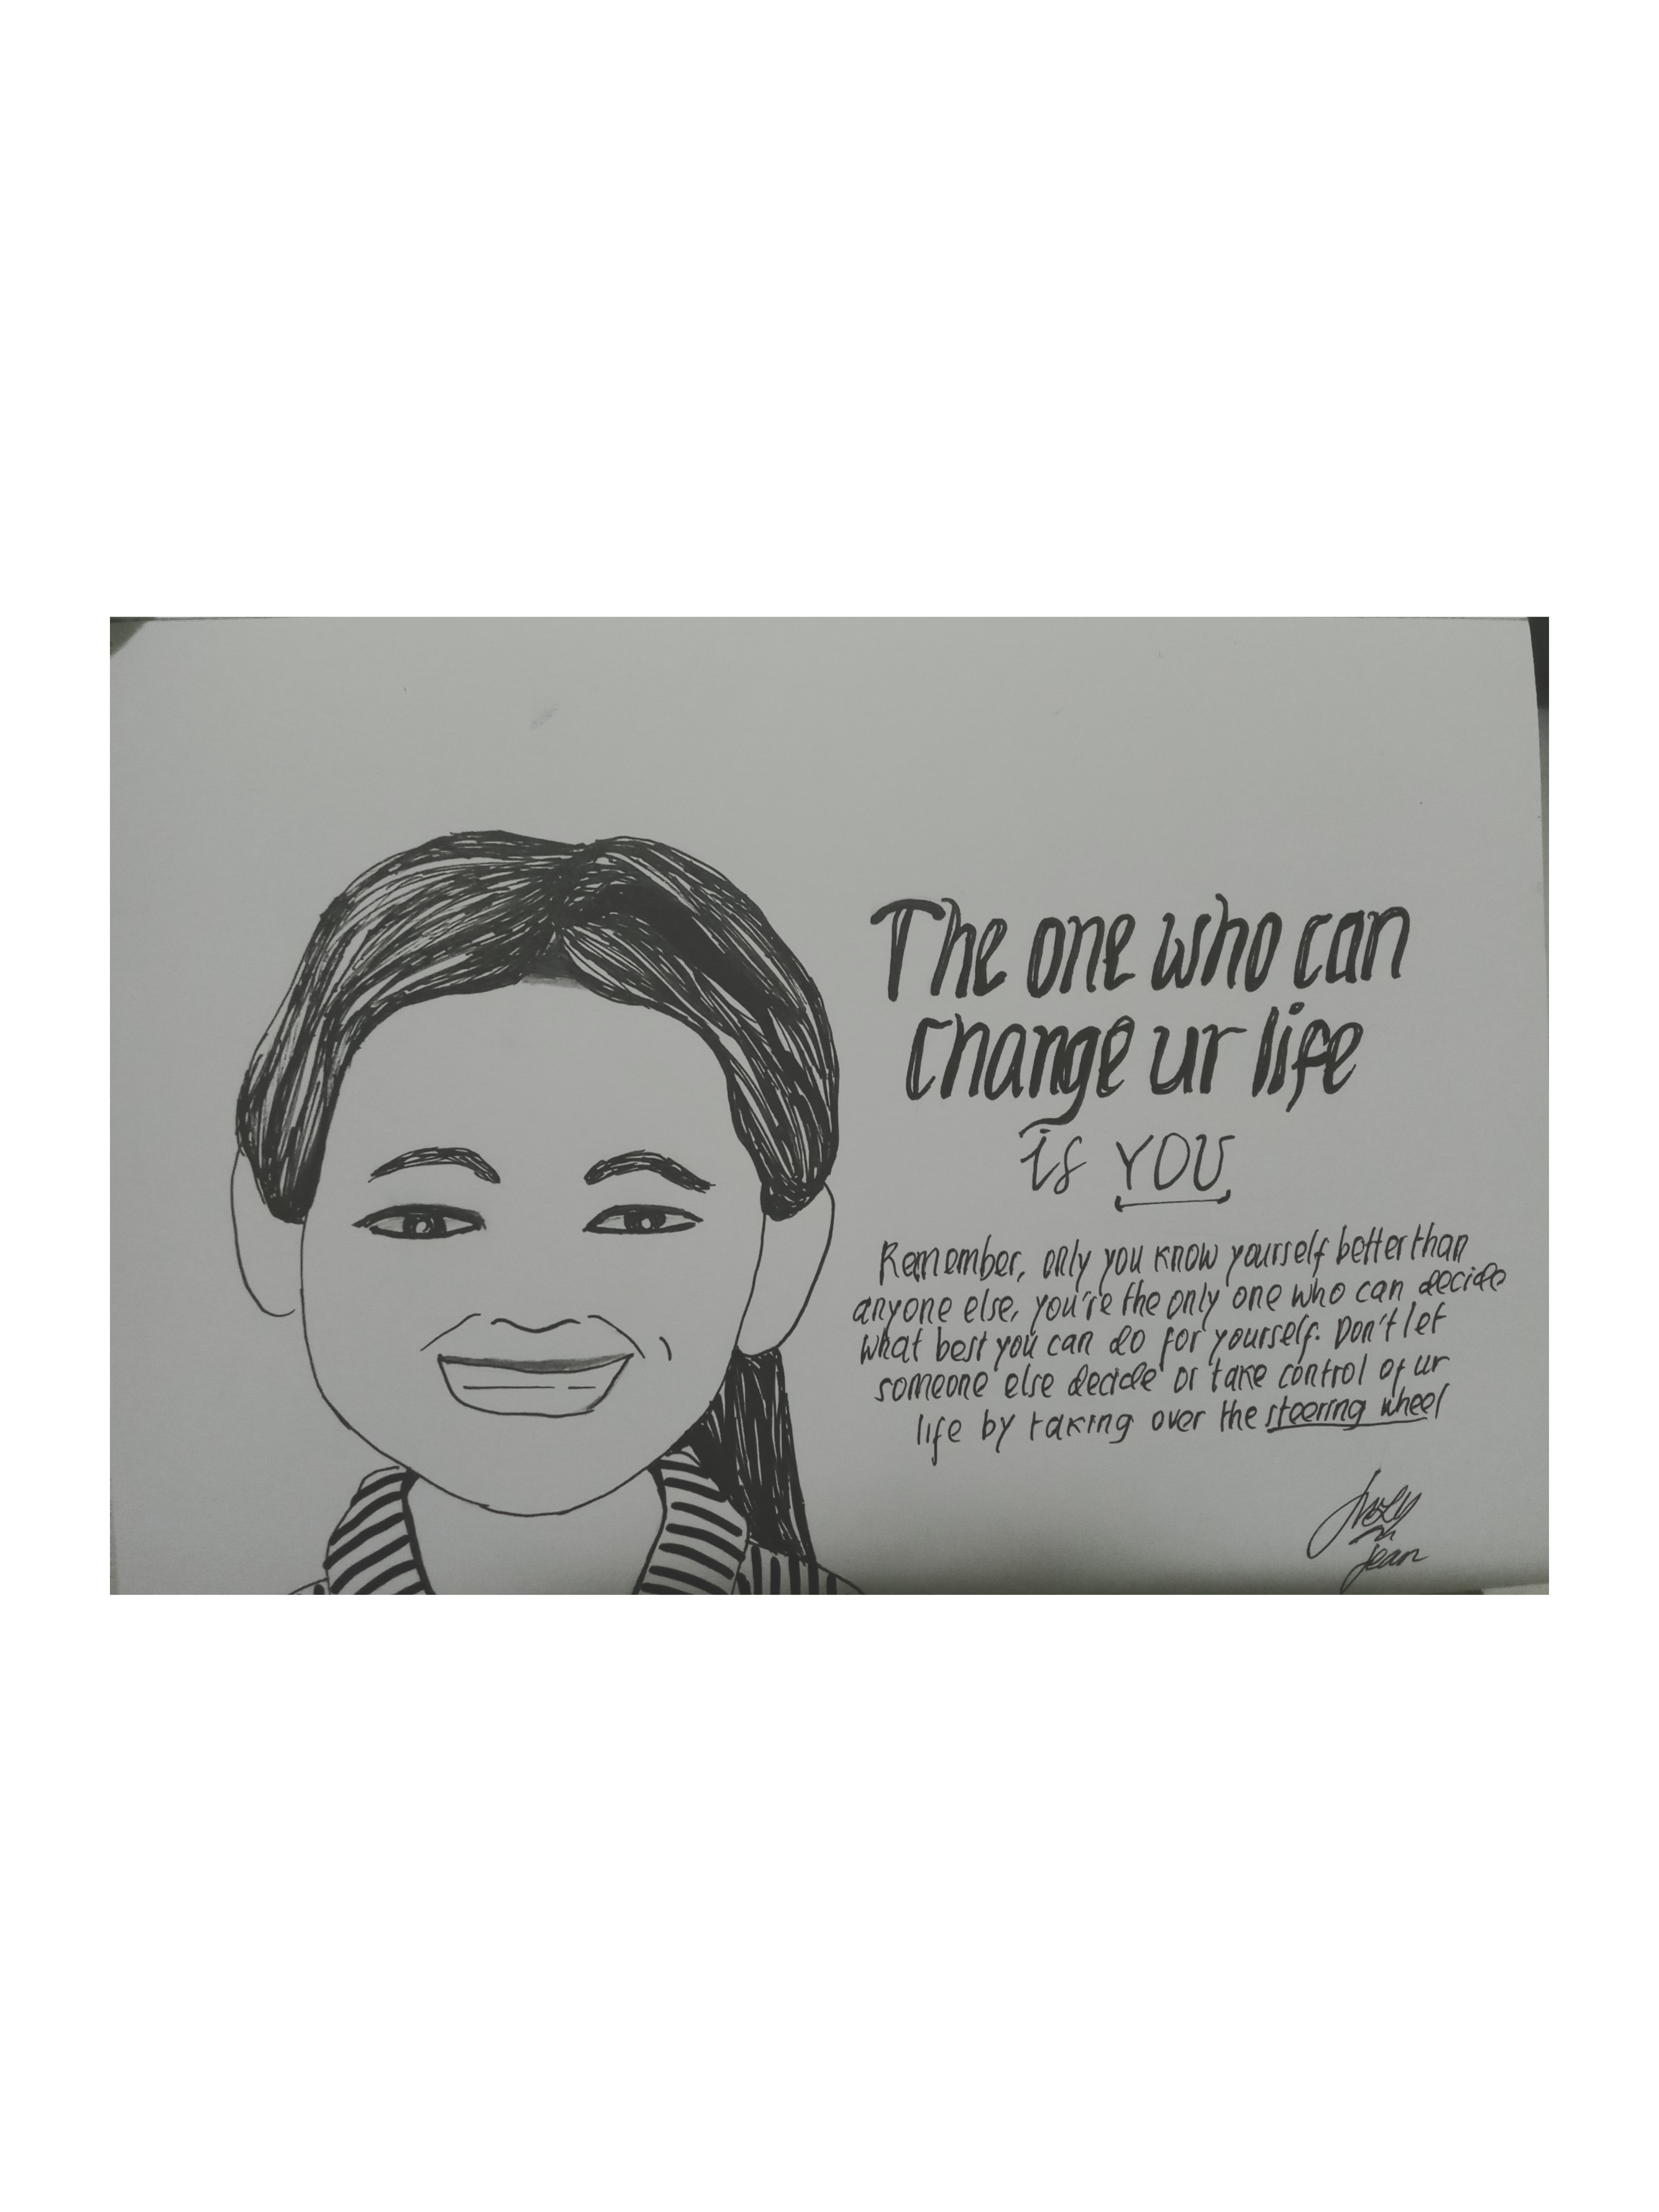 The one who can
change ur life
is YOU
Remember, only you know yourself better than
anyone else, you're the only one who can decide
what best you can do for yourself. Don't let
someone else decide or take control of ur
life by taking over the steering wheel
jean